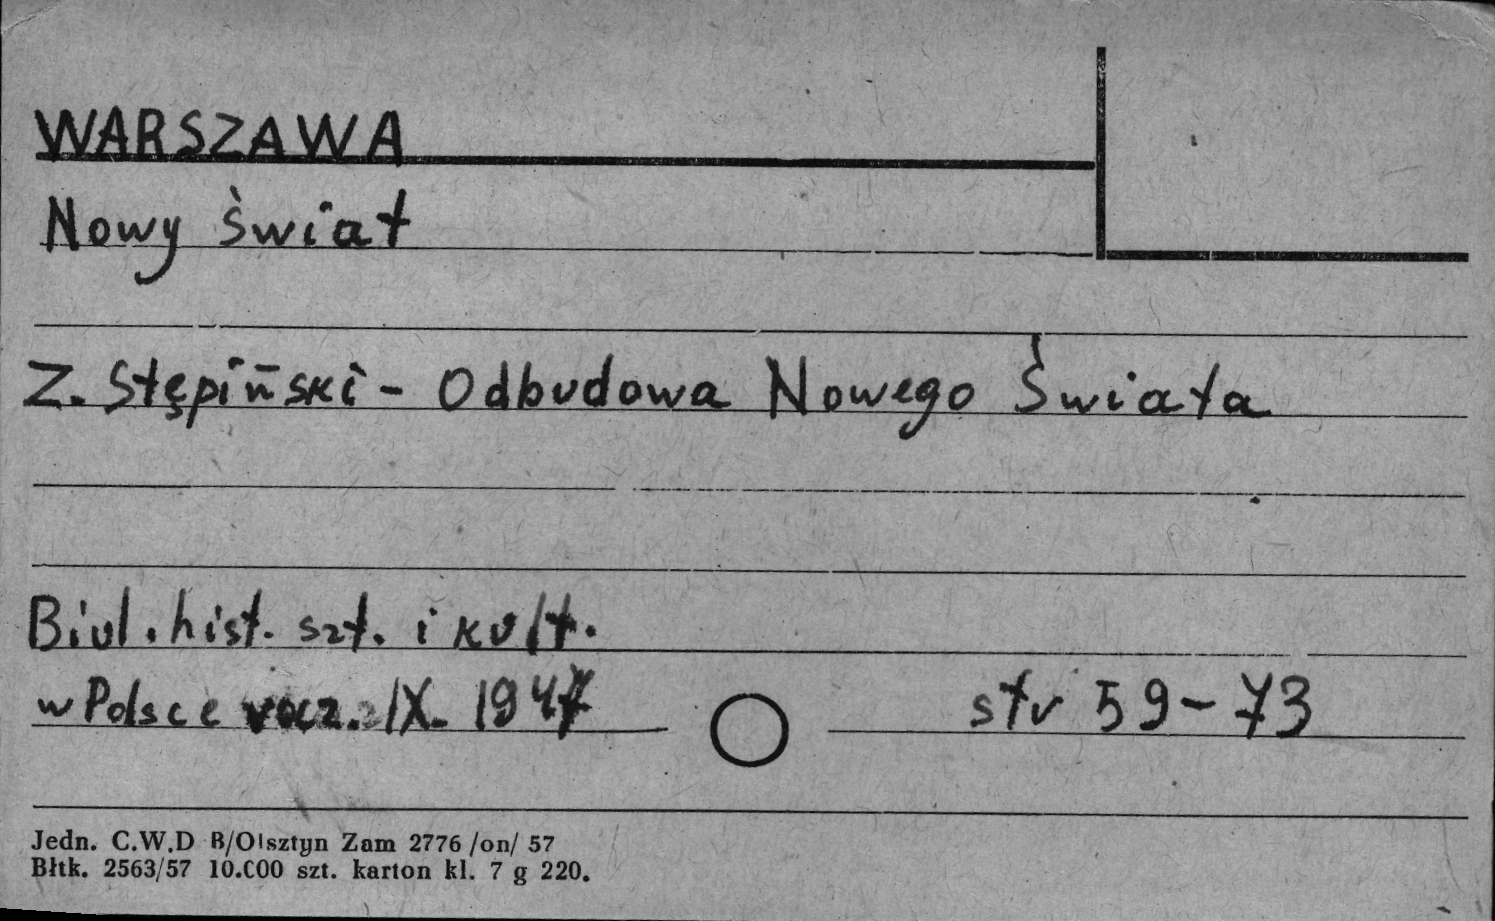 WARSZAWA
Nowy Świat
Z. Stępiński - Odbudowa Nowego Świata
Biul. hist. szt. i kult.
w Polsce rocz. IX. 1947 str 59-73
Jedn. C.W.D B/Olsztyn Zam 2776 /on/ 57
Błtk. 2563/57 10.000 szt. karton kl. 7 g 220.